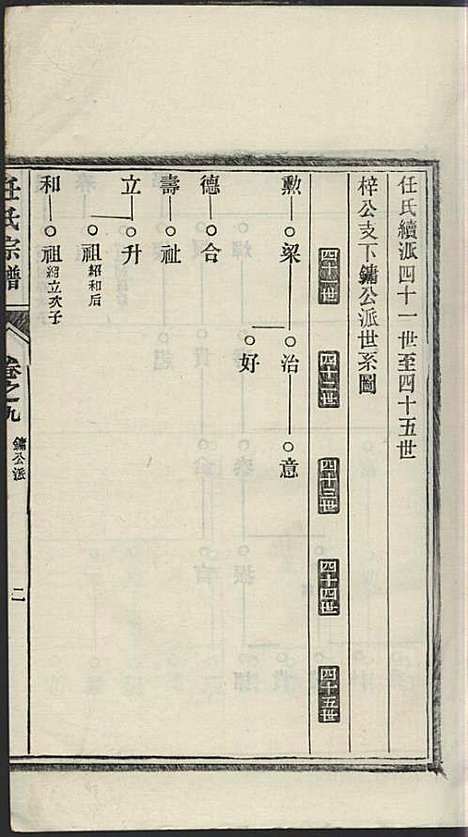 任氏續派四十一世至四十五世
梓公支下鏞公派世系圖
四十一世
四十二世
四十三世
四十四世
四十五世
勲 梁 治 意
好
德 合
壽 祉
立 升
祖 紹和后
和 祖 紹立次子
任氏宗譜 卷之九 鏞公派 二